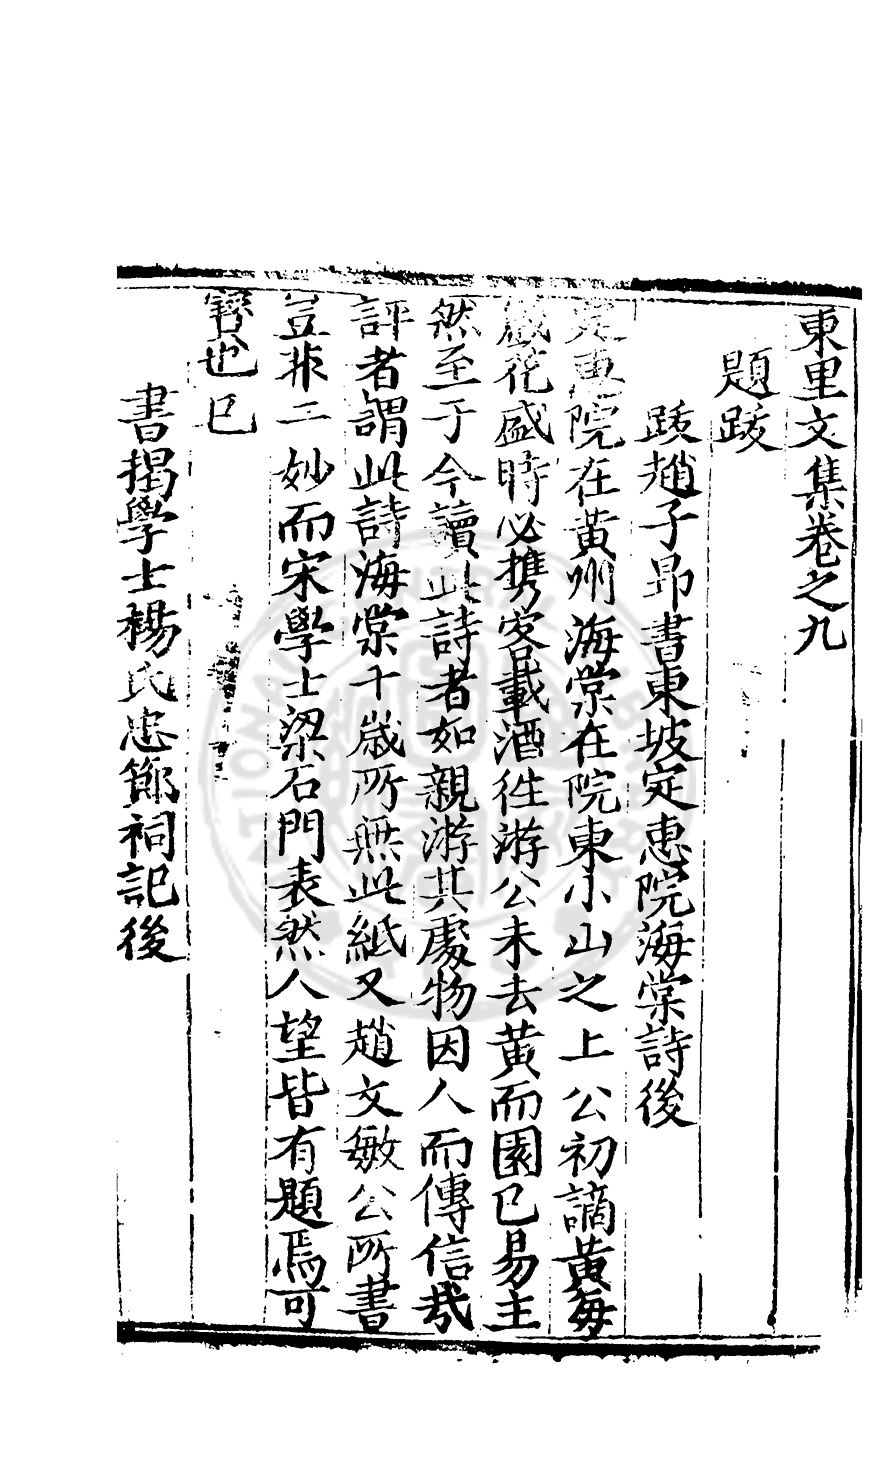 東里文集卷之九
題跋
跋趙子昂書東坡定惠院海棠詩後
定惠院在黃州海棠在院東小山之上公初謫黃每
歲花盛時必携客載酒徃游公未去黃而園已易主
然至于今讀此詩者如親游其處物因人而傳信哉
評者謂此詩海棠千歲所無此紙又趙文敏公所書
豈非二妙而宋學士梁石門表然人望皆有題焉可
寳也已
書揭學士楊氏忠節祠記後